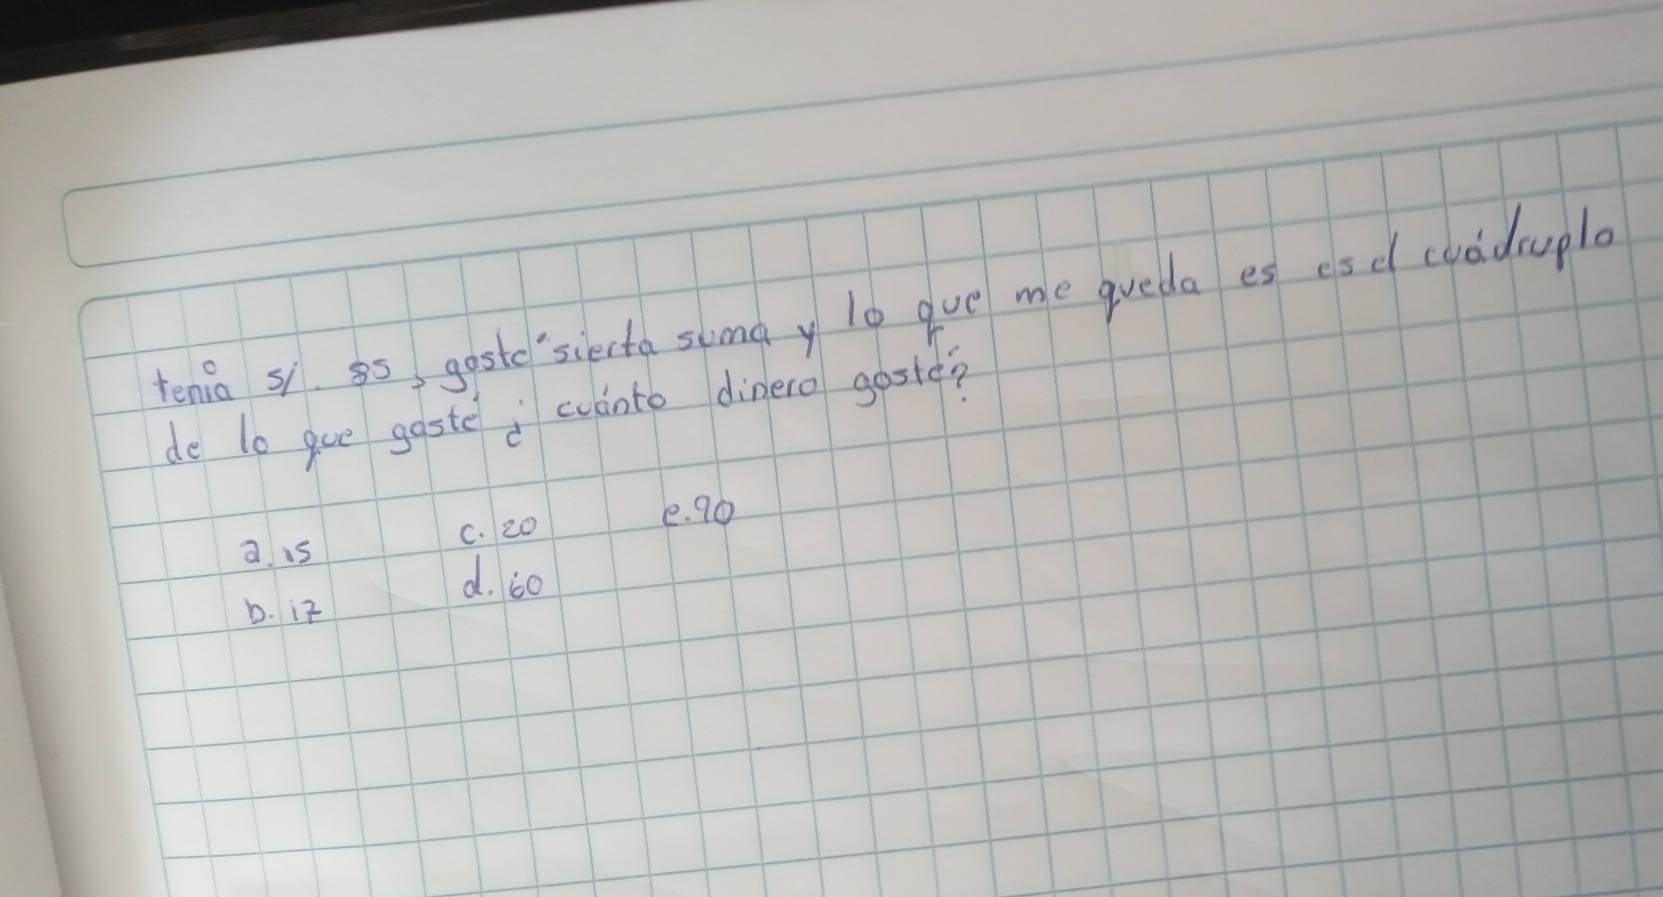 tenia s/. 85, gasté sierta suma y lo que me queda es es el cuádruplo
de lo que gasté ¿ cuánto dinero gasté?
a. 15 c. 20 e. 90
b. 17 d. 60